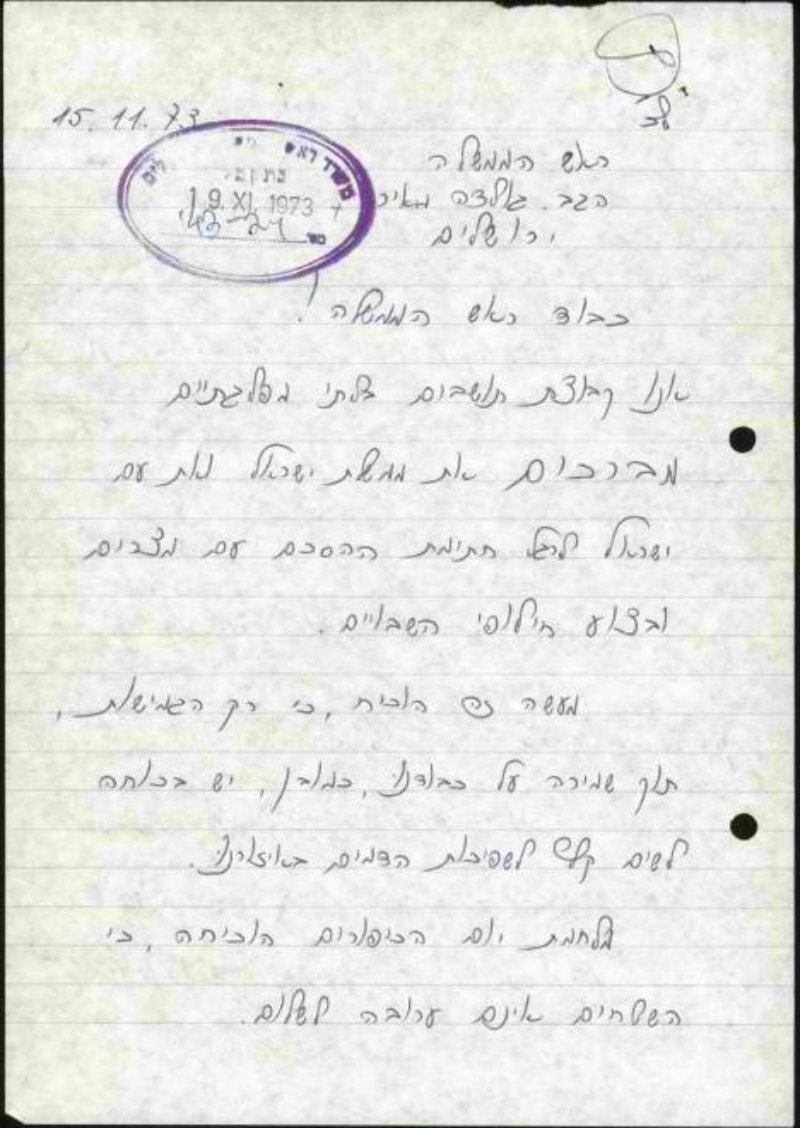 15.11.73
משרד ראש
19. XI. 1973
ראש הממשלה
הגב. גולדה מאיר
ירושלים
כבוד ראש הממשלה!
אנו קבוצת תושבים בלתי מפלגתיים
מברכים את ממשלת ישראל ואת עם
ישראל לרגל חתימת ההסכם עם מצרים
ובצוע חילופי השבויים.
מעשה זה הוכיח, כי רק הגמישות,
תוך שמירה על כבודנו, כמובן, יש בכוחה
לשים קץ לשפיכות הדמים באיזורנו.
מלחמת יום הכיפורים הוכיחה, כי
השטחים אינם ערובה לשלום.